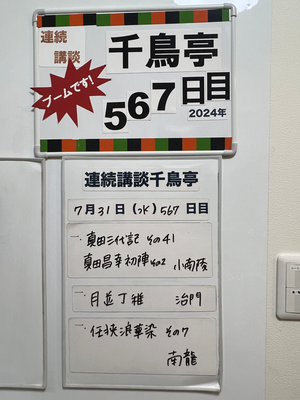 連続
講談
千鳥亭
ブームです!
567日目
2024年
連続講談千鳥亭
7月31日(水)567日目
一、真田三代記 その41
真田昌幸初陣その2 小南陵
一、月並丁稚 治門
一、任侠浪華染 その7
南龍